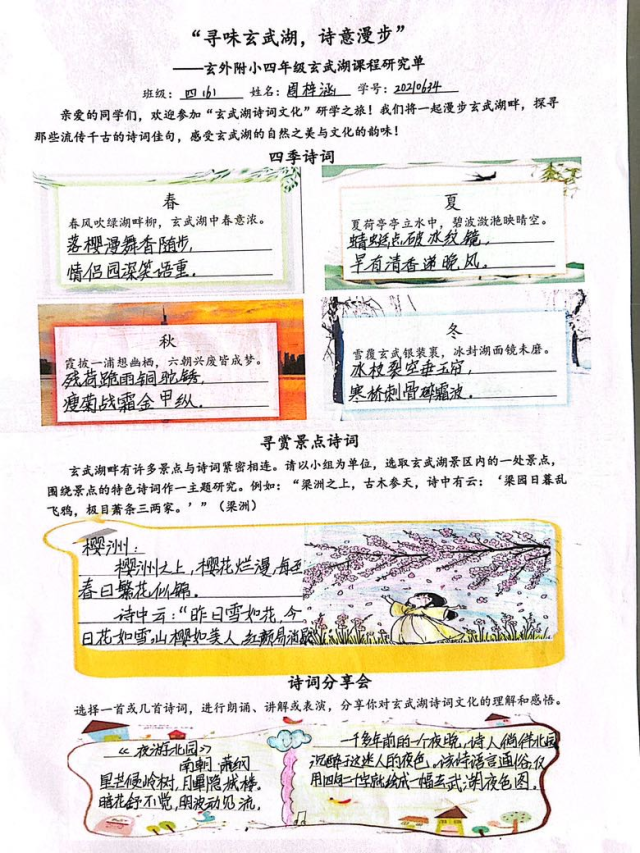 “寻味玄武湖，诗意漫步”
——玄外附小四年级玄武湖课程研究单
班级：四（6） 姓名：周梓涵 学号：20210634
亲爱的同学们，欢迎参加“玄武湖诗词文化”研学之旅！我们将一起漫步玄武湖畔，探寻
那些流传千古的诗词佳句，感受玄武湖的自然之美与文化的韵味！
四季诗词
春
春风吹绿湖畔柳，玄武湖中春意浓。
落樱漫舞香随步，
情侣园深笑语重。
夏
夏荷亭亭立水中，碧波潋滟映晴空。
蜻蜓点破水纹镜，
早有清香递晚风。
秋
霞披一浦想幽栖，六朝兴废皆成梦。
残荷跪雨铜驼锈，
瘦菊战霜金甲纵。
冬
雪覆玄武银装裹，冰封湖面镜未磨。
冰枝裂空垂玉帘，
寒桥刺骨碎霜波。
寻赏景点诗词
玄武湖畔有许多景点与诗词紧密相连。请以小组为单位，选取玄武湖景区内的一处景点，
围绕景点的特色诗词作一主题研究。例如：“梁洲之上，古木参天，诗中有云：‘梁园日暮乱
飞鸦，极目萧条三两家。’”（梁洲）
樱洲：
樱洲之上，樱花烂漫，每至
春日繁花似锦。
诗中云：“昨日雪如花，今
日花如雪，山樱如美人，红颜易消歇
诗词分享会
选择一首或几首诗词，进行朗诵、讲解或表演，分享你对玄武湖诗词文化的理解和感悟。
《夜游北园》
南朝 萧纲
星芒侵岭树，月晕隐城楼。
暗花舒不觉，明波动见流，
一千多年前的一个夜晚，诗人徜徉北园
沉醉于这迷人的夜色，该诗语言通俗，仅
用四句二十字就绘成一幅玄武湖夜色图。